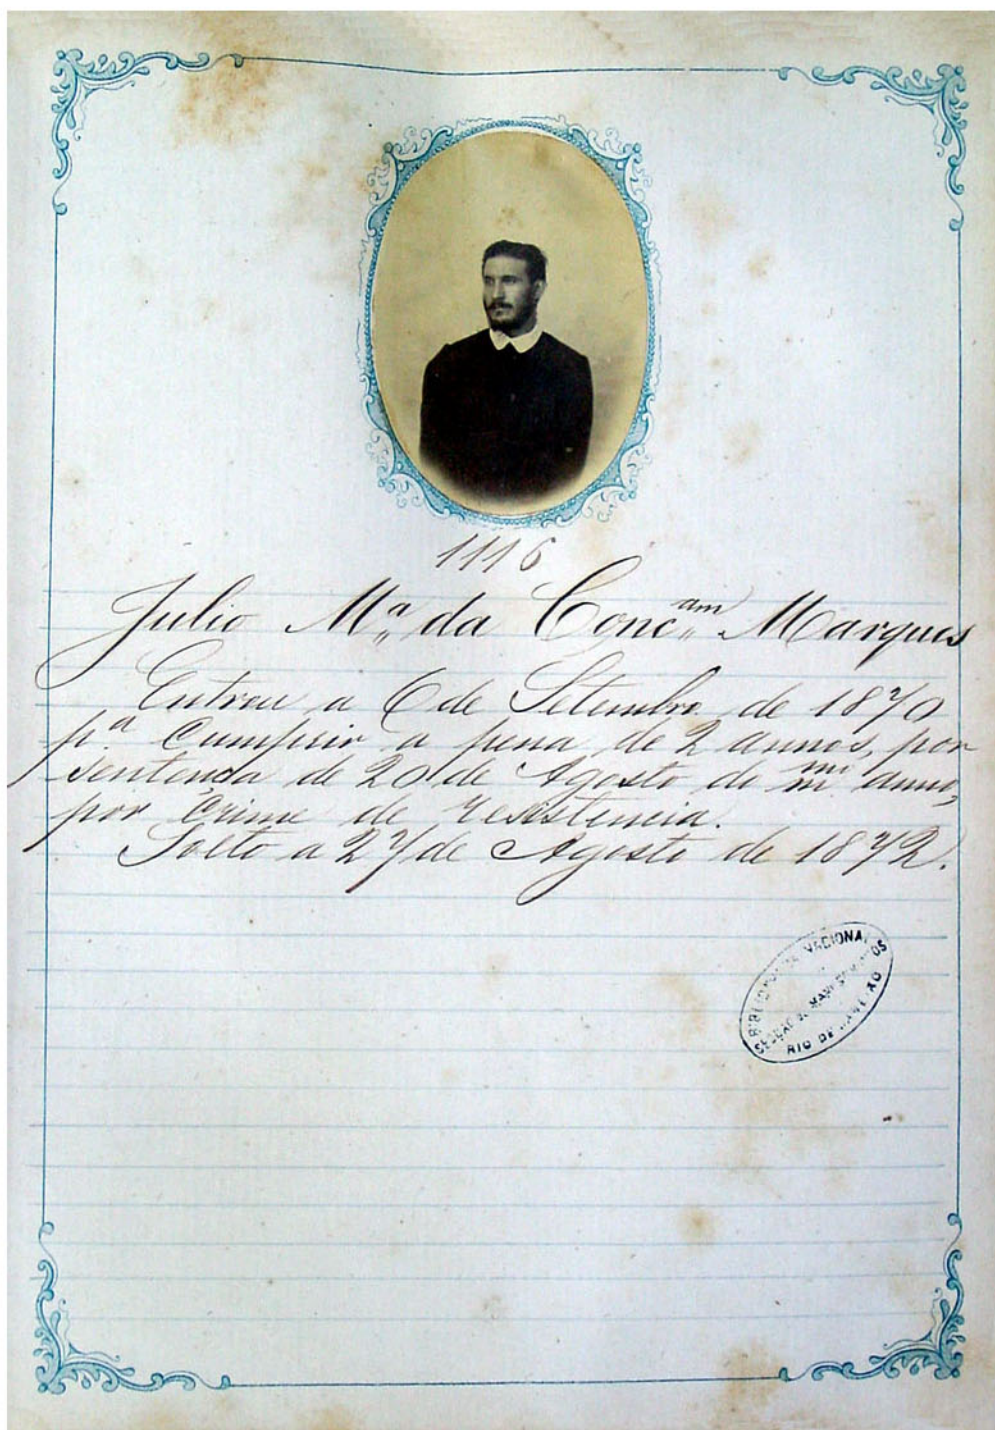 1116
Julio M.ª da Conc.am Marques
Entrou a 6 de Setembro de 1870
p.ª cumprir a pena de 2 annos, por
sentença de 20 de Agosto do m.mo anno,
por crime de resistencia.
Solto a 27 de Agosto de 1872.
BIBLIOTHECA NACIONAL
SECÇÃO DE MANUSCRIPTOS
RIO DE JANEIRO